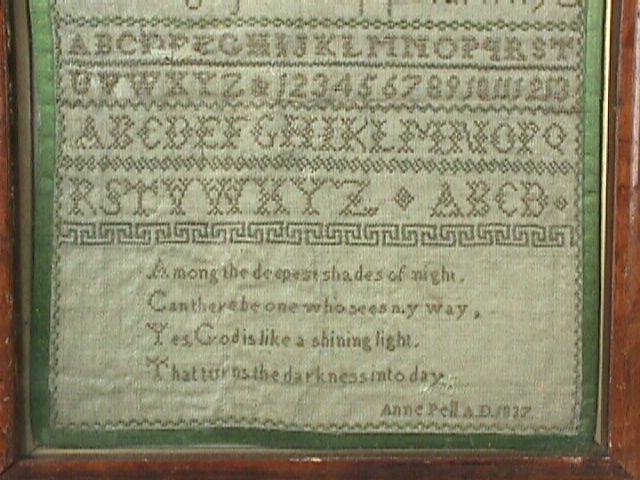 ABCDEFGHIJKLMNOPQRST
UVWXYZ&12345678910111213
ABCDEFGHIJKLMNOPQ
RSTVWXYZ ABCD
Among the deepest shades of night.
Can there be one who sees my way,
Yes, God is like a shining light.
That turns the darkness into day.
Anne Pell A.D. 1837